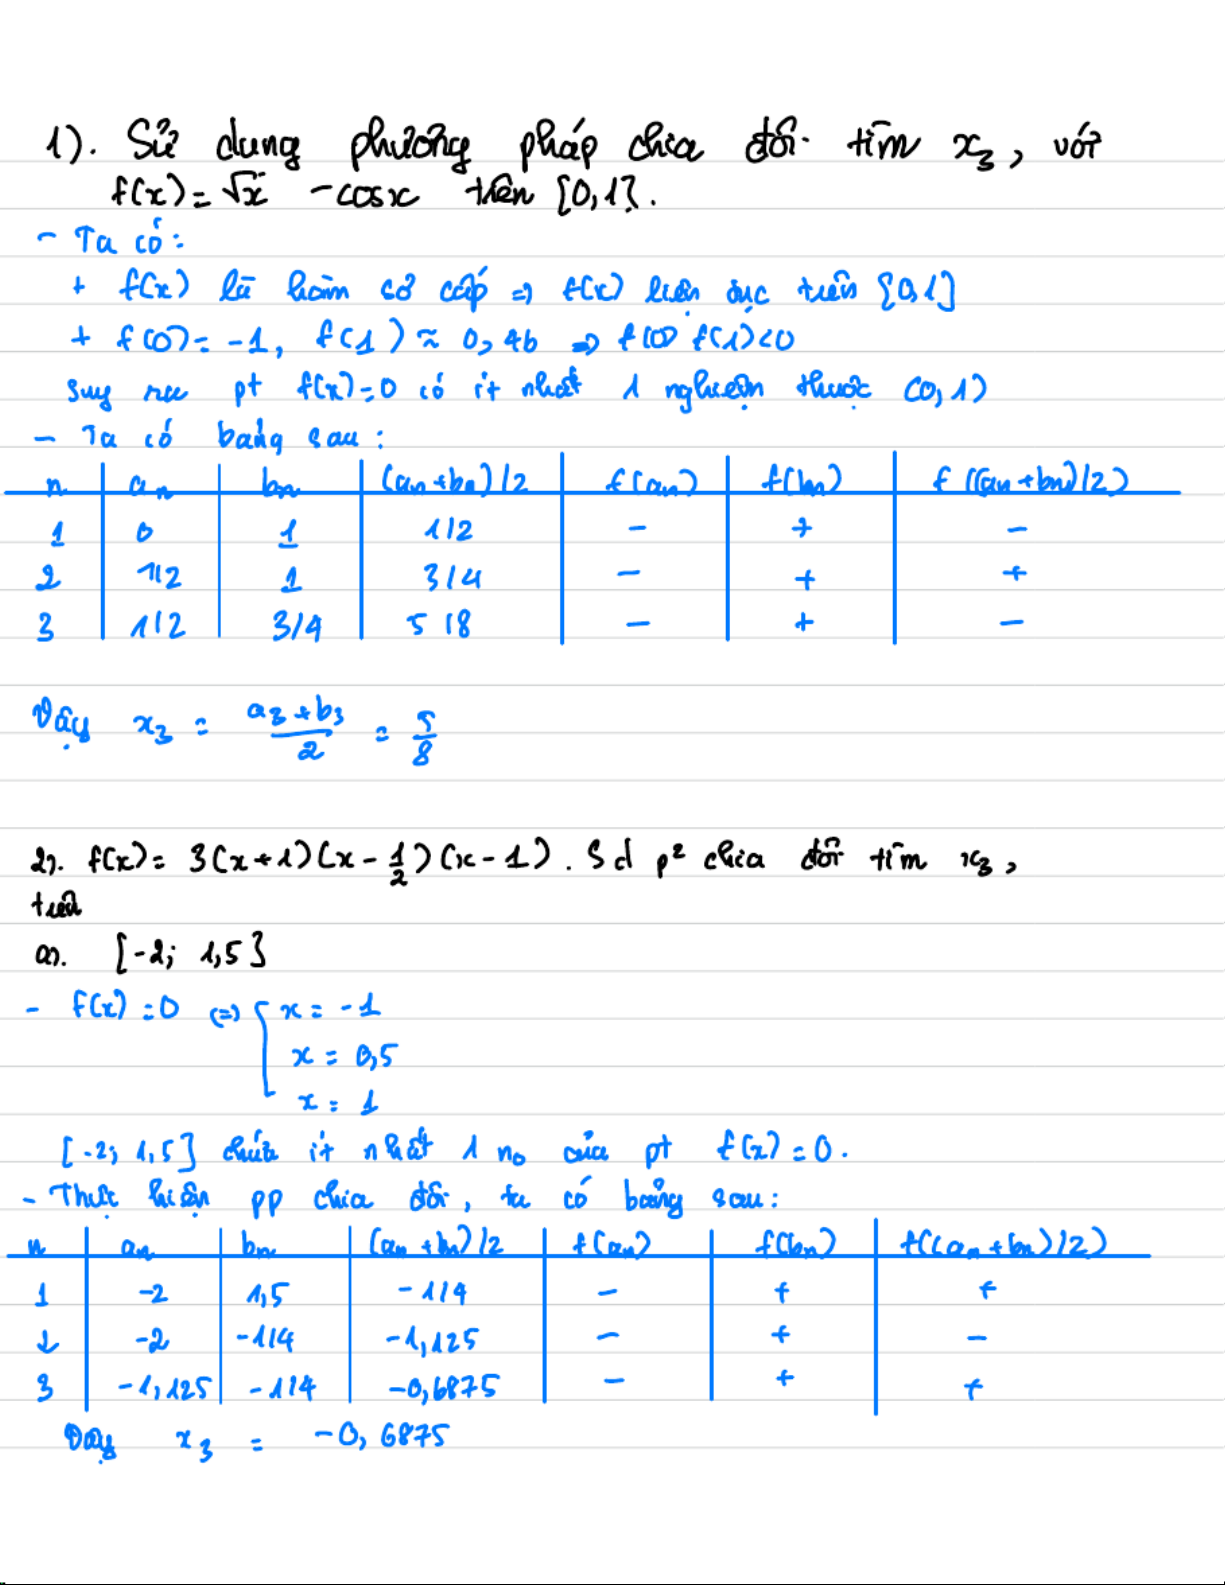 1). Sử dụng phương pháp chia đôi tìm x₃, với
f(x) = √x - cosx trên [0,1].
- Ta có:
+ f(x) là hàm sơ cấp ⇒ f(x) liên tục trên [0,1]
+ f(0) = -1, f(1) ≈ 0,46 ⇒ f(0) f(1) < 0
Suy ra pt f(x) = 0 có ít nhất 1 nghiệm thuộc (0,1)
- Ta có bảng sau:
n | aₙ | bₙ | (aₙ+bₙ)/2 | f(aₙ) | f(bₙ) | f((aₙ+bₙ)/2)
1 | 0 | 1 | 1/2 | - | + | -
2 | 1/2 | 1 | 3/4 | - | + | +
3 | 1/2 | 3/4 | 5/8 | - | + | -
Vậy x₃ = (a₃+b₃)/2 = 5/8
2). f(x) = 3(x+1)(x - 1/2)(x - 1). Sd p² chia đôi tìm x₃,
trên
a). [-2; 1,5]
- f(x) = 0 (=) [ x = -1
x = 0,5
x = 1
[-2; 1,5] chứa ít nhất 1 n₀ của pt f(x) = 0.
- Thực hiện pp chia đôi, ta có bảng sau:
n | aₙ | bₙ | (aₙ+bₙ)/2 | f(aₙ) | f(bₙ) | f((aₙ+bₙ)/2)
1 | -2 | 1,5 | -1/4 | - | + | +
2 | -2 | -1/4 | -1,125 | - | + | -
3 | -1,125 | -1/4 | -0,6875 | - | + | +
Vậy x₃ = -0,6875